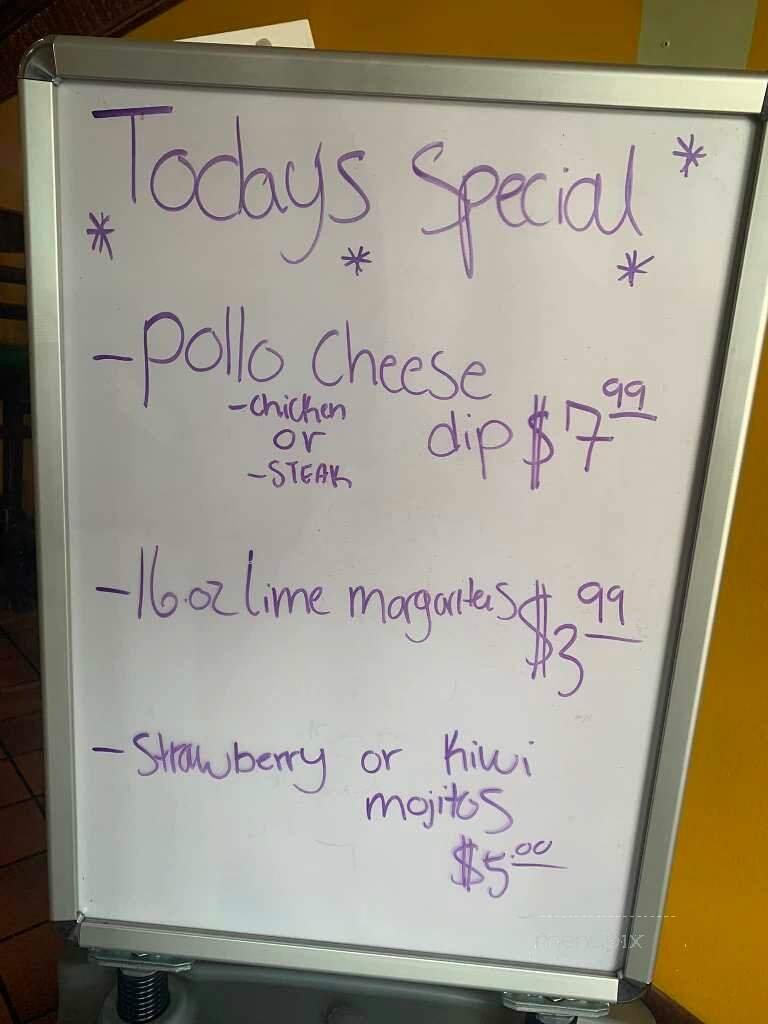 Todays Special
- Pollo Cheese
- chicken
or
- STEAK
dip $7.99
- 16.oz lime margaritas $3.99
- Strawberry or kiwi
mojitos
$5.00
menupix